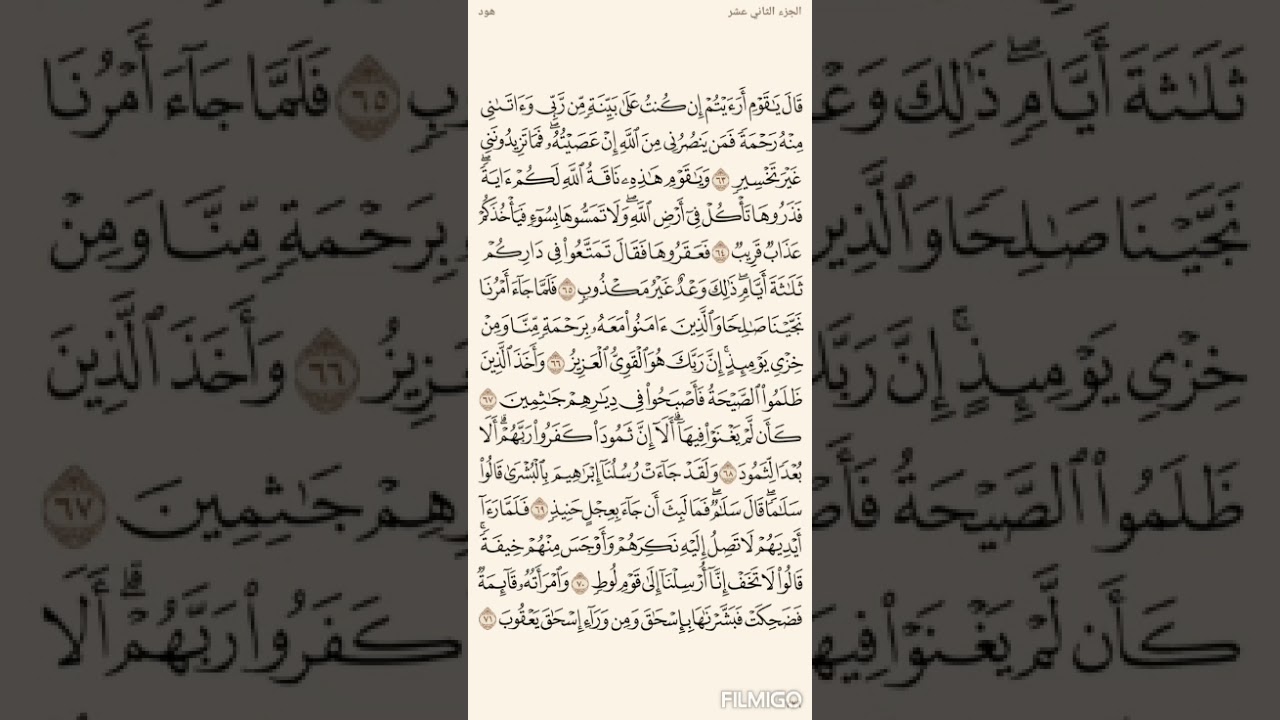 الجزء الثاني عشر
هود
قَالَ يَٰقَوْمِ أَرَءَيْتُمْ إِن كُنتُ عَلَىٰ بَيِّنَةٍ مِّن رَّبِّي وَءَاتَىٰنِي
مِنْهُ رَحْمَةً فَمَن يَنصُرُنِي مِنَ ٱللَّهِ إِنْ عَصَيْتُهُۥۖ فَمَا تَزِيدُونَنِي
غَيْرَ تَخْسِيرٍ ٦٣ وَيَٰقَوْمِ هَٰذِهِۦ نَاقَةُ ٱللَّهِ لَكُمْ ءَايَةًۖ
فَذَرُوهَا تَأْكُلْ فِيٓ أَرْضِ ٱللَّهِۖ وَلَا تَمَسُّوهَا بِسُوٓءٍ فَيَأْخُذَكُمْ
عَذَابٌ قَرِيبٌ ٦٤ فَعَقَرُوهَا فَقَالَ تَمَتَّعُوا۟ فِي دَارِكُمْ
ثَلَٰثَةَ أَيَّامٍۖ ذَٰلِكَ وَعْدٌ غَيْرُ مَكْذُوبٍ ٦٥ فَلَمَّا جَآءَ أَمْرُنَا
نَجَّيْنَا صَٰلِحًا وَٱلَّذِينَ ءَامَنُوا۟ مَعَهُۥ بِرَحْمَةٍ مِّنَّا وَمِنْ
خِزْيِ يَوْمِئِذٍۚ إِنَّ رَبَّكَ هُوَ ٱلْقَوِيُّ ٱلْعَزِيزُ ٦٦ وَأَخَذَ ٱلَّذِينَ
ظَلَمُوا۟ ٱلصَّيْحَةُ فَأَصْبَحُوا۟ فِي دِيَٰرِهِمْ جَٰثِمِينَ ٦٧
كَأَن لَّمْ يَغْنَوْا۟ فِيهَآۗ أَلَآ إِنَّ ثَمُودَا۟ كَفَرُوا۟ رَبَّهُمْۗ أَلَا
بُعْدًا لِّثَمُودَ ٦٨ وَلَقَدْ جَآءَتْ رُسُلُنَآ إِبْرَٰهِيمَ بِٱلْبُشْرَىٰ قَالُوا۟
سَلَٰمًاۖ قَالَ سَلَٰمٌۖ فَمَا لَبِثَ أَن جَآءَ بِعِجْلٍ حَنِيذٍ ٦٩ فَلَمَّا رَءَآ
أَيْدِيَهُمْ لَا تَصِلُ إِلَيْهِ نَكِرَهُمْ وَأَوْجَسَ مِنْهُمْ خِيفَةًۚ
قَالُوا۟ لَا تَخَفْ إِنَّآ أُرْسِلْنَآ إِلَىٰ قَوْمِ لُوطٍ ٧٠ وَٱمْرَأَتُهُۥ قَآئِمَةٌ
فَضَحِكَتْ فَبَشَّرْنَٰهَا بِإِسْحَٰقَ وَمِن وَرَآءِ إِسْحَٰقَ يَعْقُوبَ ٧١
FILMIGO
ثَلَٰثَةَ أَيَّامٍۖ ذَٰلِكَ
٦٥ فَلَمَّا جَآءَ أَمْرُنَا
نَجَّيْنَا صَٰلِحًا وَٱلَّذِينَ
بِرَحْمَةٍ مِّنَّا وَمِنْ
خِزْيِ يَوْمِئِذٍۚ إِنَّ
٦٦ وَأَخَذَ ٱلَّذِينَ
ظَلَمُوا۟ ٱلصَّيْحَةُ
جَٰثِمِينَ ٦٧
كَأَن لَّمْ يَغْنَوْا۟
كَفَرُوا۟ رَبَّهُمْۗ أَلَا